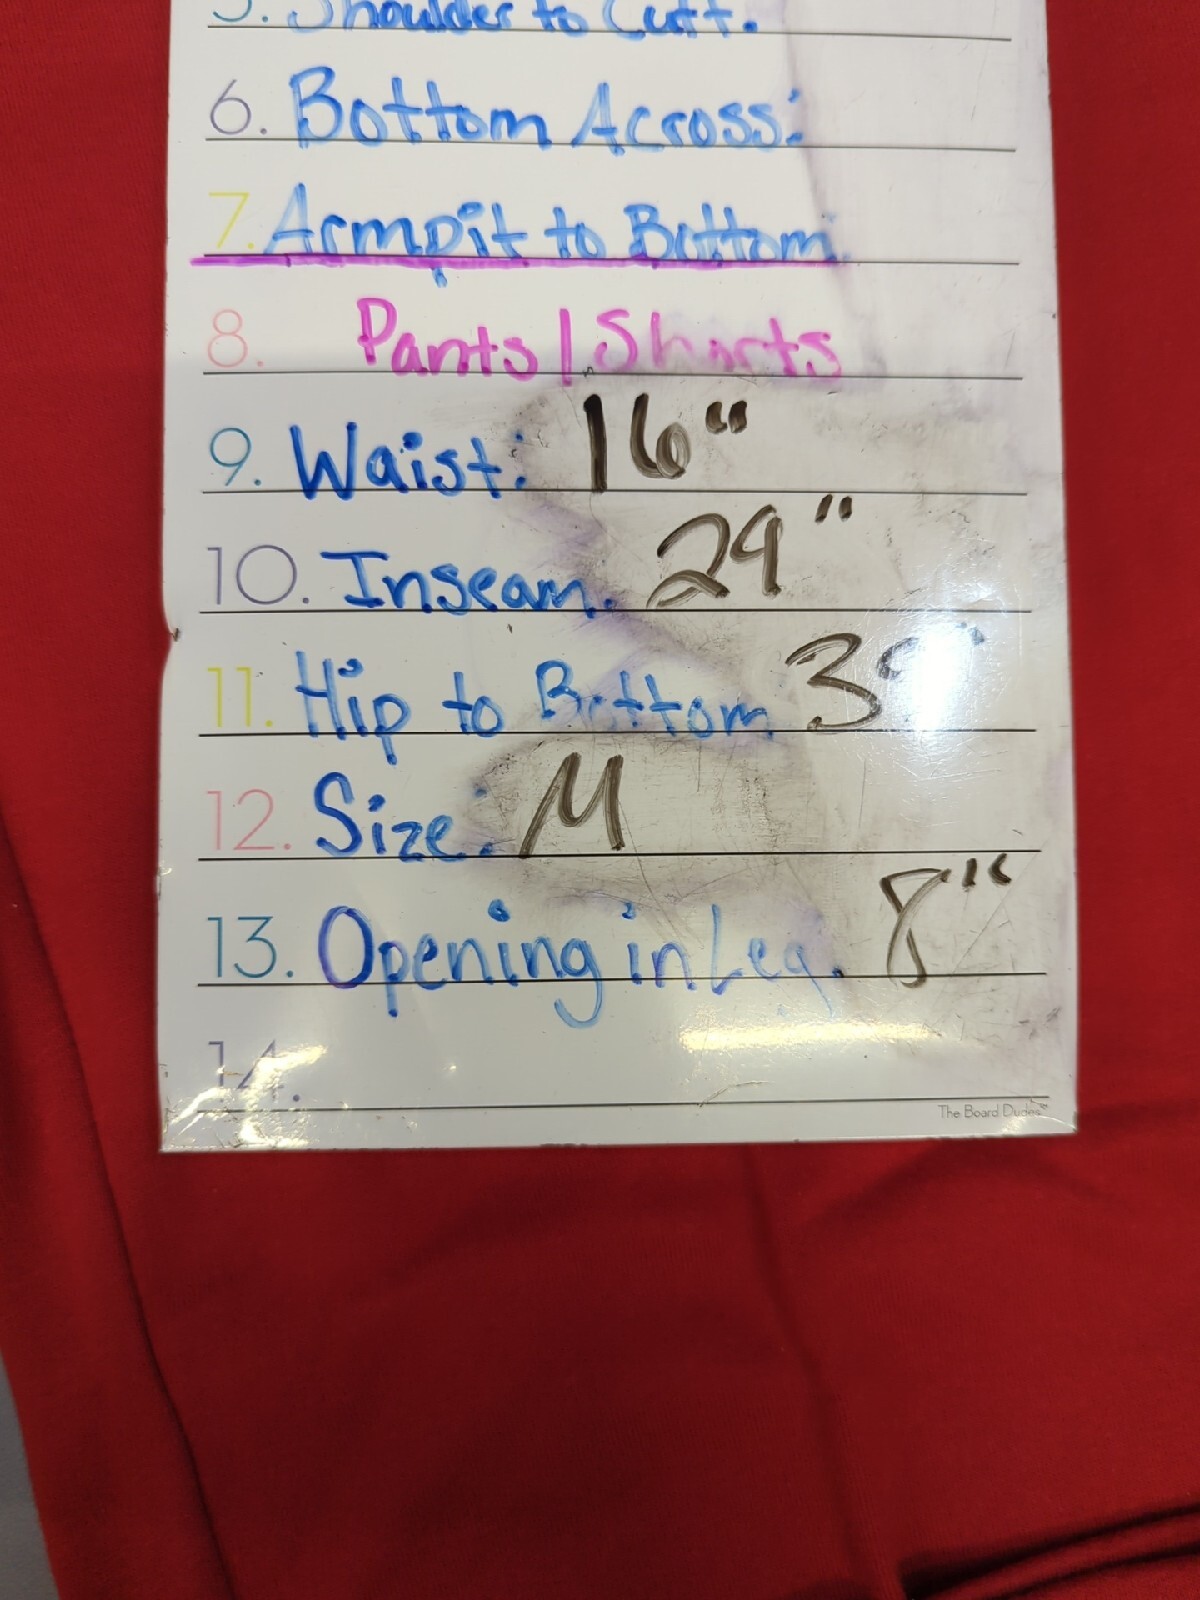 5. Shoulder to Cuff.
6. Bottom Across:
7. Armpit to Bottom.
8. Pants/Shorts
9. Waist: 16"
10. Inseam. 29"
11. Hip to Bottom
12. Size: M
13. Opening in Leg. 8"
14.
The Board Dudes